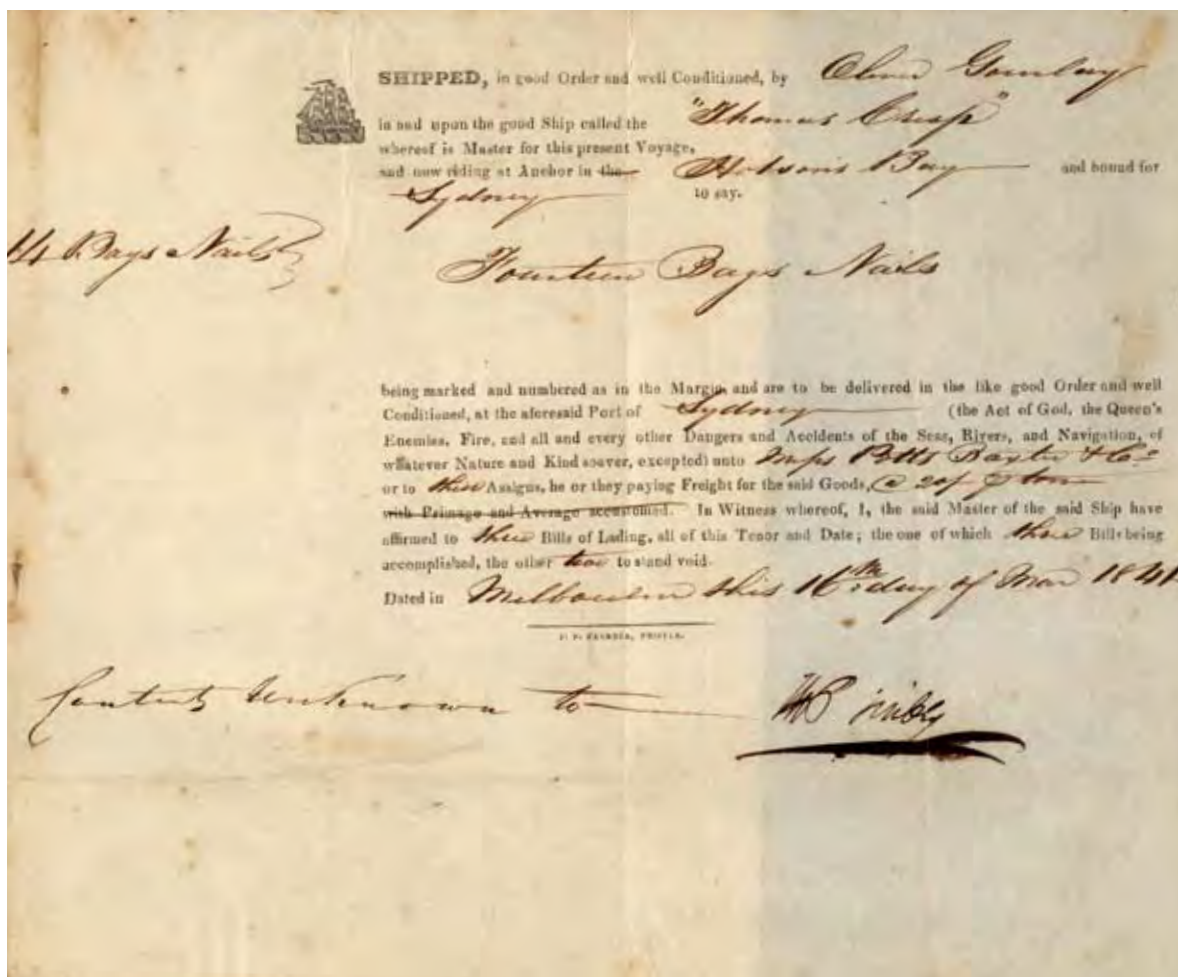 SHIPPED, in good Order and well Conditioned, by Oliver Gourlay
in and upon the good Ship called the "Thomas Crisp"
whereof is Master for this present Voyage,
and now riding at Anchor in the Hobsons Bay and bound for
Sydney to say.
14 Bags Nails
Fourteen Bags Nails
being marked and numbered as in the Margin and are to be delivered in the like good Order and well
Conditioned, at the aforesaid Port of Sydney (the Act of God, the Queen's
Enemies, Fire, and all and every other Dangers and Accidents of the Seas, Rivers, and Navigation, of
whatever Nature and Kind soever, excepted) unto Baxter & Co
or to their Assigns, he or they paying Freight for the said Goods, @ 20/
with Primage and Average accustomed. In Witness whereof, I, the said Master of the said Ship have
affirmed to three Bills of Lading, all of this Tenor and Date; the one of which three Bills being
accomplished, the other two to stand void.
Dated in Melbourne this 16th day of 184
Contents Unknown to